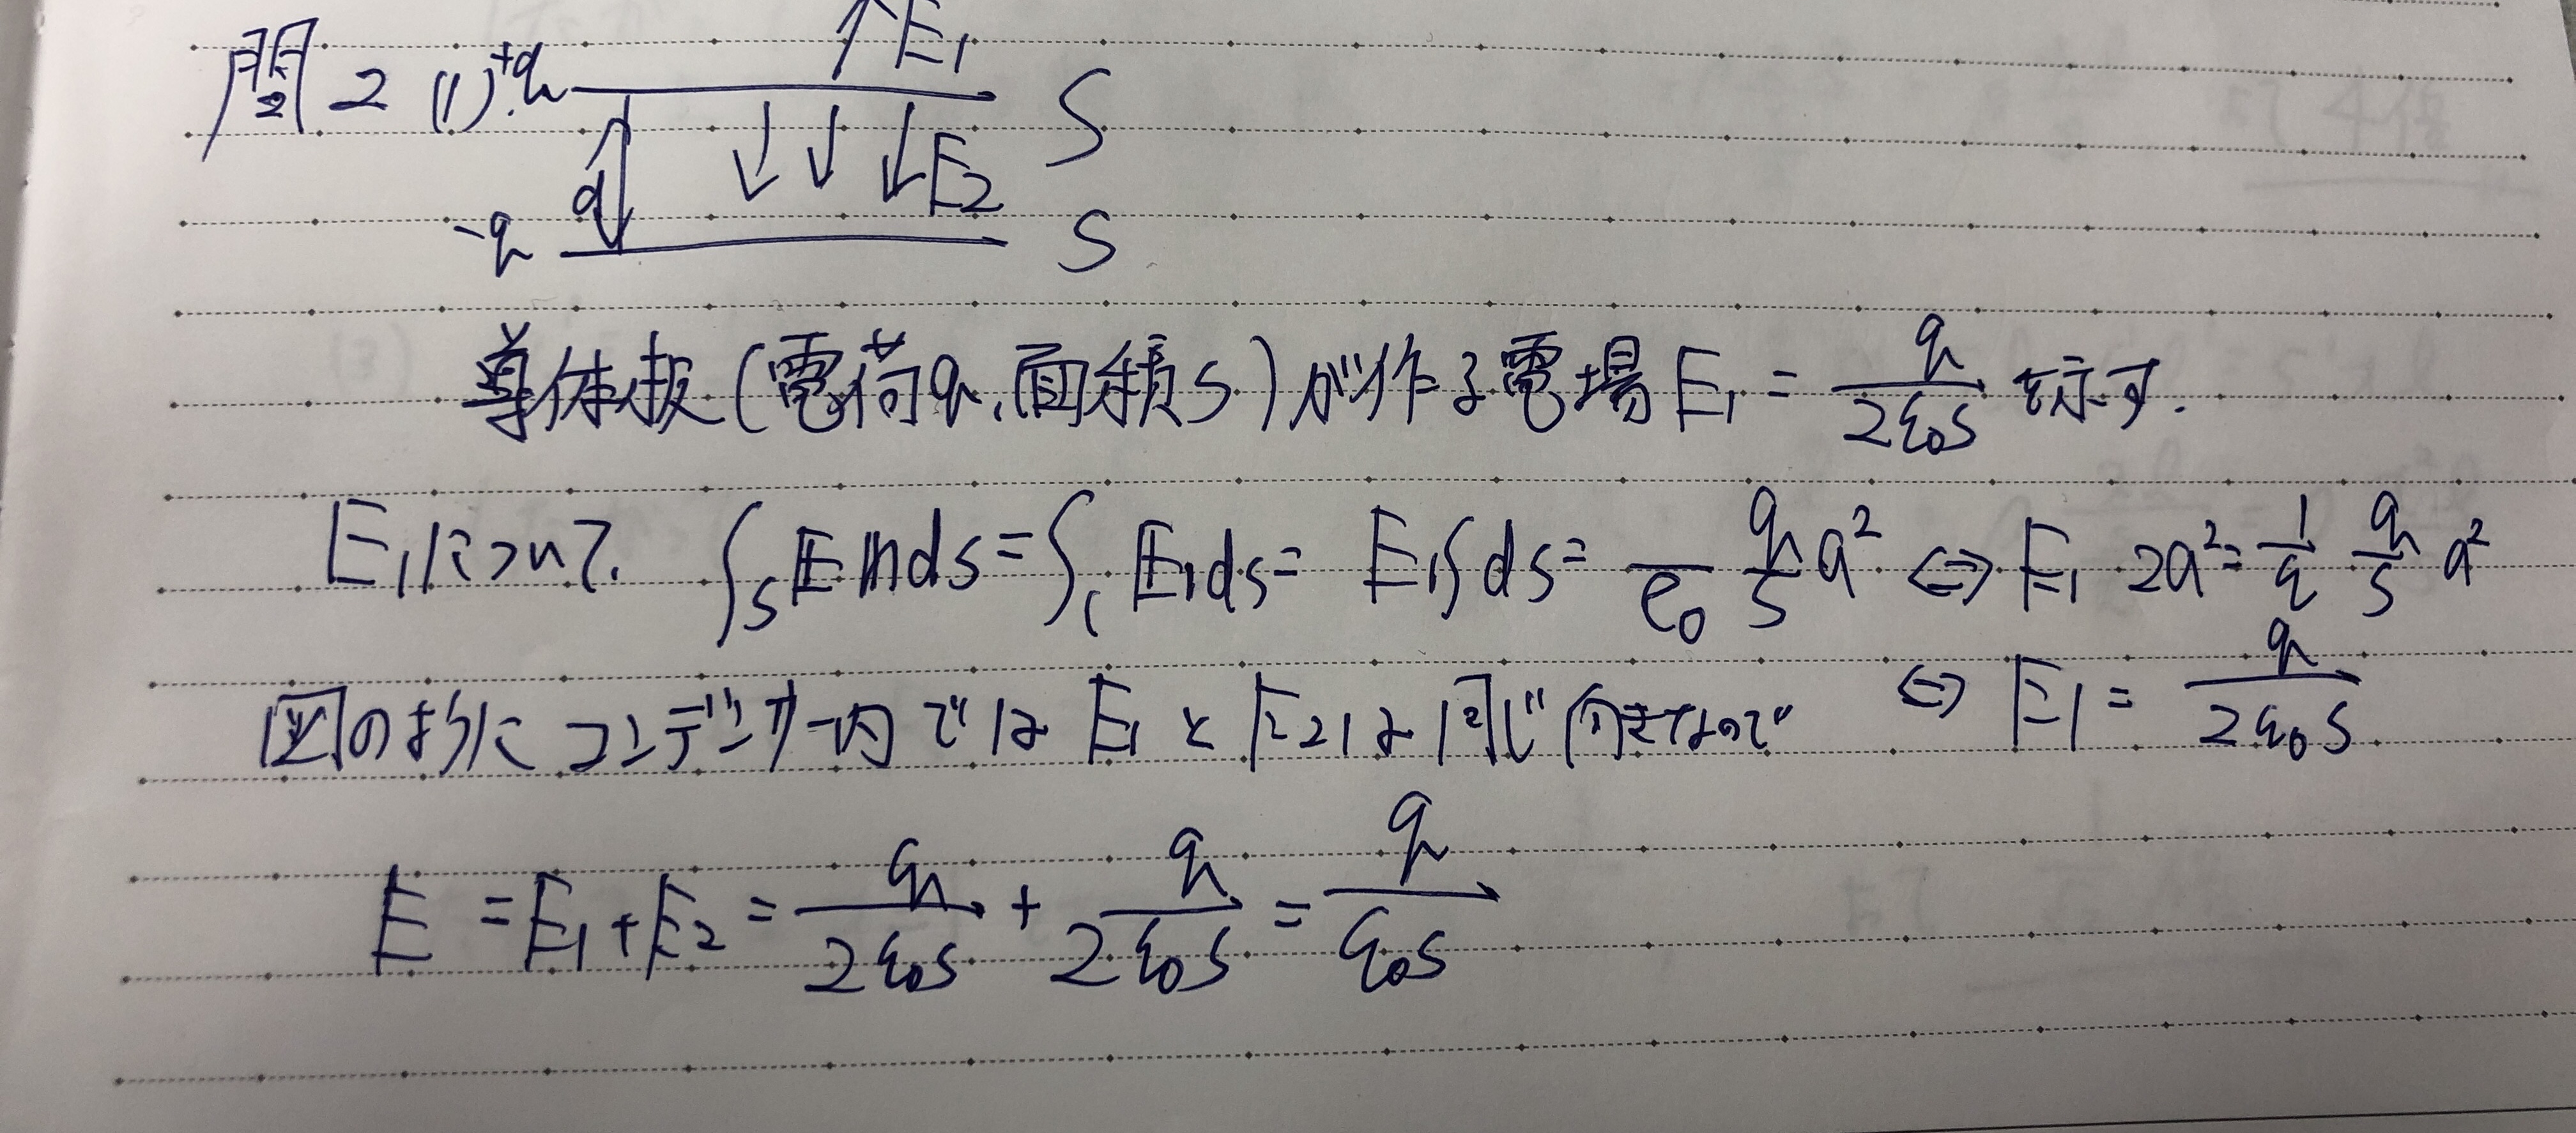 問2 (1) +q ↑E₁ S
d ↓ ↓ ↓E₂
-q S
導体板(電荷q,面積S)が作る電場E₁ = q/2ε₀S を示す.
E₁について. ∫ₛ E n ds = ∫ E₁ds = E₁∫ds = /ε₀ q/S a² ⇔ E₁ 2a² = 1/ε q/S a²
⇔ E₁ = q/2ε₀S
図のようにコンデンサー内では E₁ と E₂は同じ向きなので
E = E₁ + E₂ = q/2ε₀S + q/2ε₀S = q/ε₀S